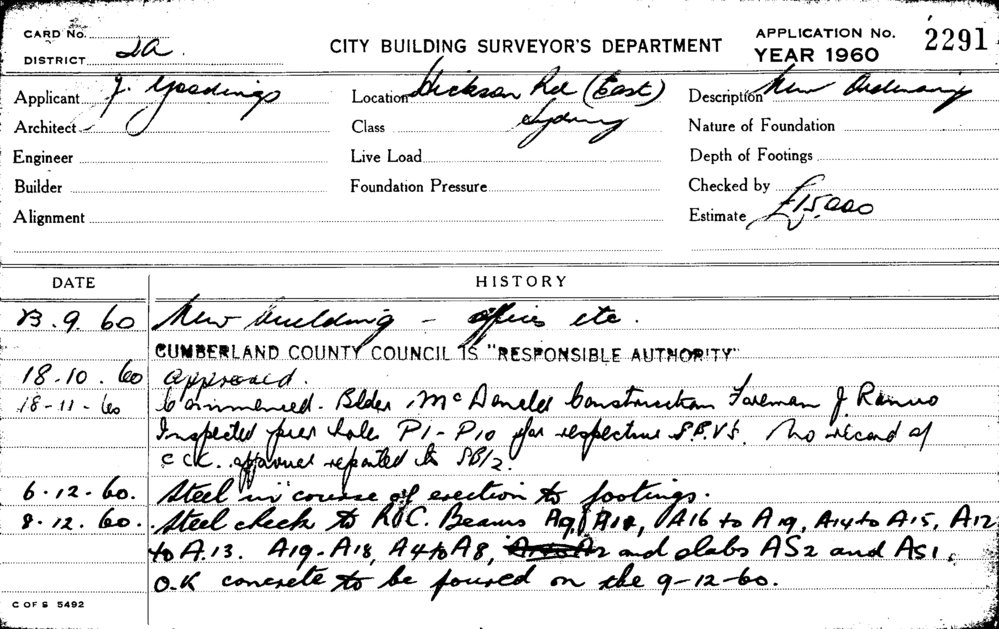 CARD No.
DISTRICT 2A.
CITY BUILDING SURVEYOR'S DEPARTMENT
APPLICATION No. 2291
YEAR 1960
Applicant J. Goodings
Location Hickson Rd (East)
Sydney
Description New
Architect
Class
Nature of Foundation
Engineer
Live Load
Depth of Footings
Builder
Foundation Pressure
Checked by
Alignment
Estimate £15,000
DATE HISTORY
13.9.60 New Building - offices etc.
CUMBERLAND COUNTY COUNCIL IS "RESPONSIBLE AUTHORITY"
18-10.60 approved.
18-11-60 Commenced. Blder. McDonald Construction Foreman J.
Inspected pier hole P1-P10 for respective No record of
C.C.C. approval reported to SB/2.
6-12-60. Steel in course of erection to footings.
8.12.60. Steel check to R.C. Beams A9, A16 to A19, A14 to A15, A12
to A.13. A19-A18, A4 to A8, A2 and slabs AS2 and AS1.
O.K concrete to be poured on the 9-12-60.
C OF S 5492